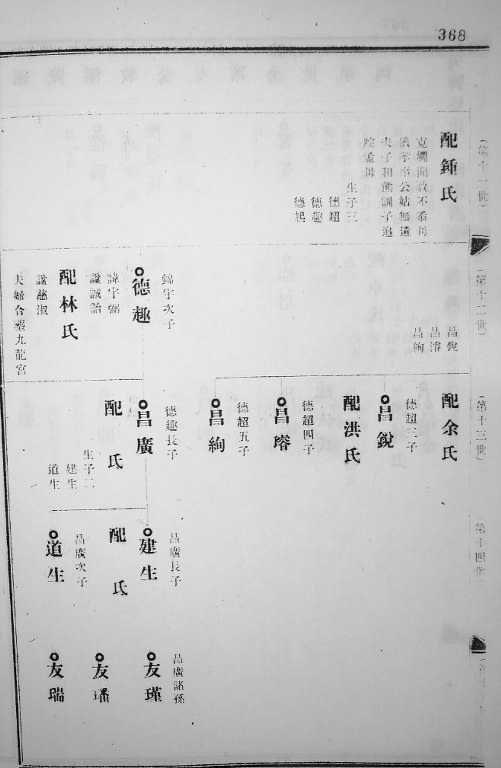 368
(第十一世)
配鍾氏
儀容事公姑無違
夫子和熊訓子追
踪孟母
生子三
德超
德趣
德起
(第十二世)
昌銳
昌濬
昌絢
錦宇次子
德趣
諱宇弼
諡誠詒
配林氏
諡慈淑
夫婦合塟九龍宮
(第十三世)
配余氏
德超三子
昌銳
配洪氏
德超四子
昌濬
德超五子
昌絢
德趣長子
昌廣
配 氏
生子二
建生
道生
第十四世
昌廣長子
建生
配 氏
昌廣次子
道生
昌廣諸孫
友瑾
友璠
友瑞